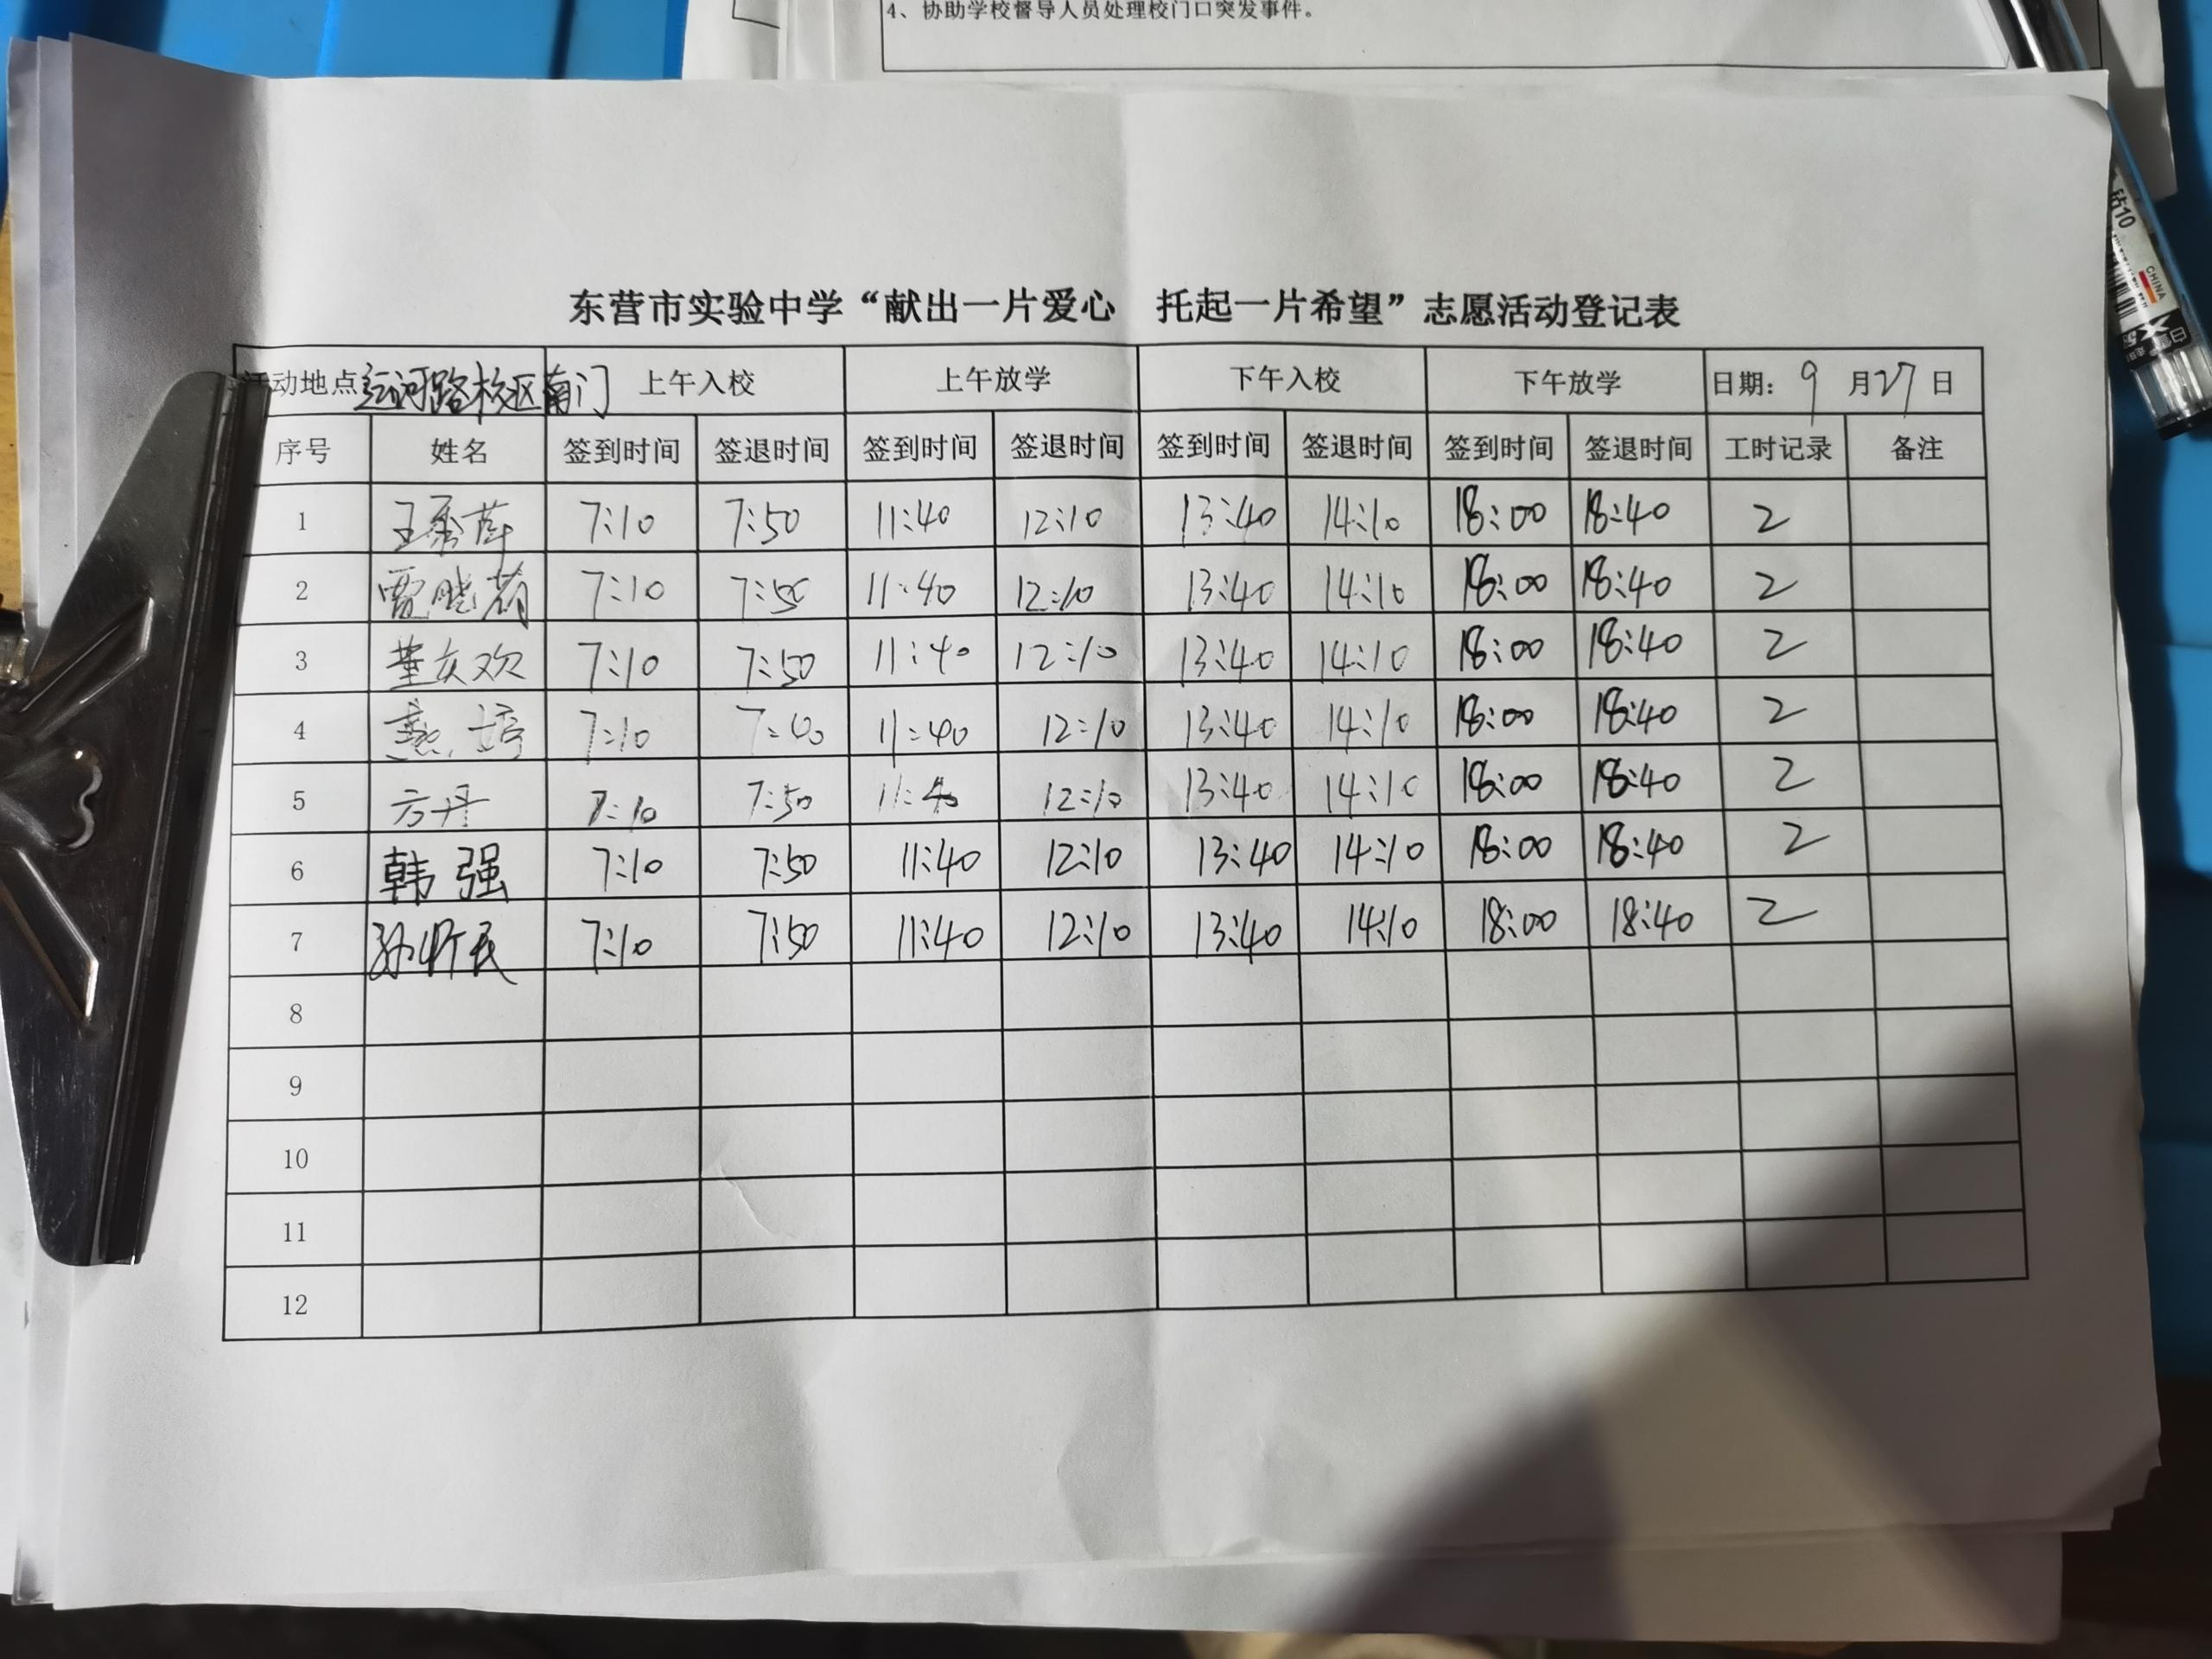 4、协助学校督导人员处理校门口突发事件。
东营市实验中学“献出一片爱心 托起一片希望”志愿活动登记表
活动地点 运河路校区南门 上午入校 上午放学 下午入校 下午放学 日期: 9 月 27 日
序号 姓名 签到时间 签退时间 签到时间 签退时间 签到时间 签退时间 签到时间 签退时间 工时记录 备注
1 7:10 7:50 11:40 12:10 13:40 14:10 18:00 18:40 2
2 7:10 7:50 11:40 12:10 13:40 14:10 18:00 18:40 2
3 董庆欢 7:10 7:50 11:40 12:10 13:40 14:10 18:00 18:40 2
4 7:10 7:40 11:40 12:10 13:40 14:10 18:00 18:40 2
5 方丹 7:10 7:50 11:40 12:10 13:40 14:10 18:00 18:40 2
6 韩强 7:10 7:50 11:40 12:10 13:40 14:10 18:00 18:40 2
7 7:10 7:50 11:40 12:10 13:40 14:10 18:00 18:40 2
8
9
10
11
12
CHINA